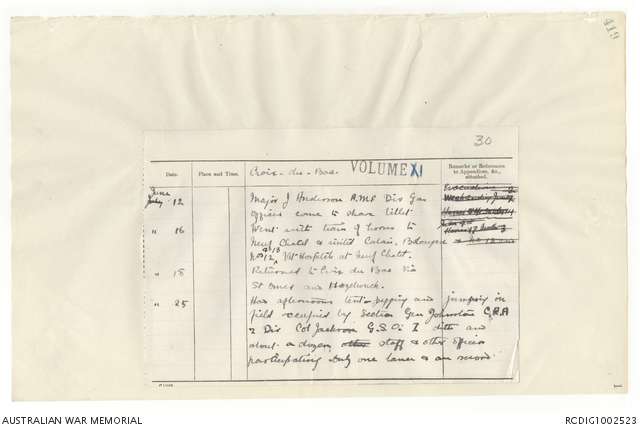 419
30
Date.
Place and Time.
Croix-du-Bac.
VOLUME XI
Remarks or References
to Appendices, &c.,
attached.
June
July 12
Major J Anderson A.M.F Div Gas
officer came to share billet
" 16
Went with team of horses to
Neuf Chatel & visited Calais, Boulogne
& 13
Nos 12, Vet Hospitals at Neuf Chatel.
" 18
Returned to Croix du Bac via
St Omer and Hazebrouck.
" 25
Had afternoons tent-pegging and jumping in
field occupied by Section Gen Johnston C.R.A
2 Div Col Jackson G.S.O. I ditto and
about a dozen other staff & other officers
participating only one lance & one sword
Evacuations
Week ending
AUSTRALIAN WAR MEMORIAL
RCDIG1002523